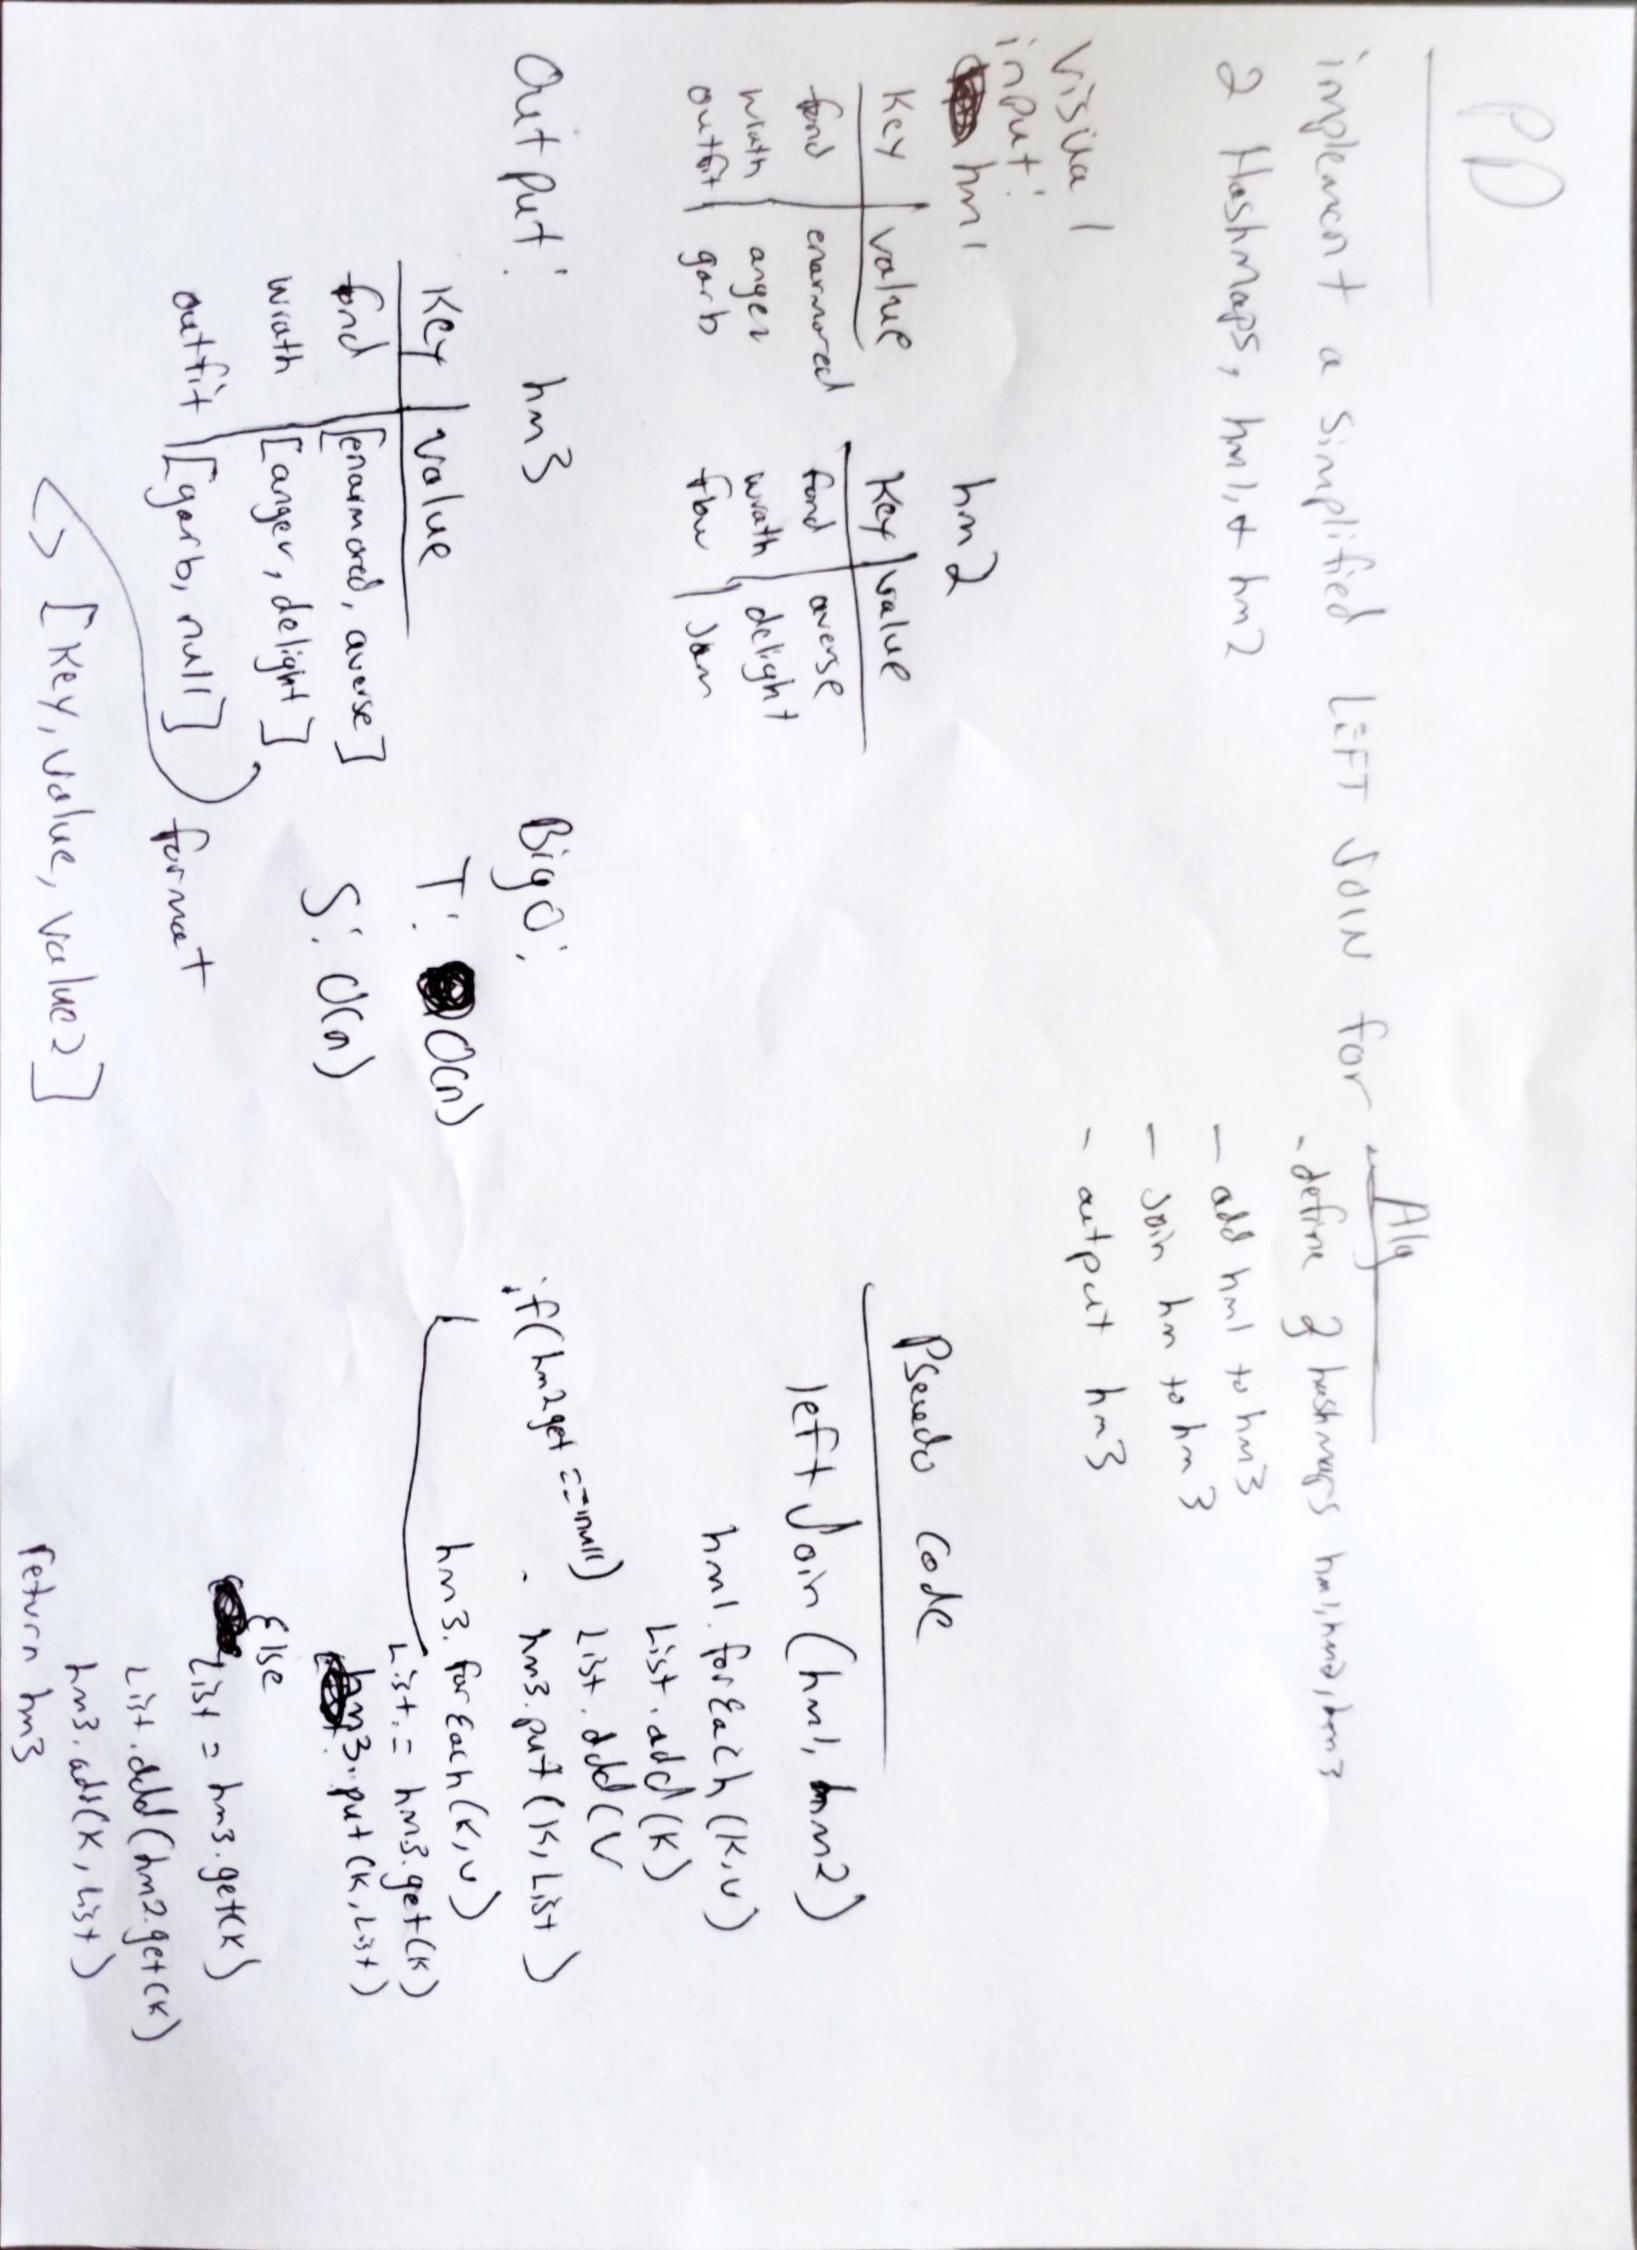 PD
implement a simplified LEFT JOIN for
2 Hashmaps, hm1, & hm2
Visual
input:
hm1
Key | value
fond | enarmored
wrath | anger
outfit | garb
hm2
Key | value
fond | averse
wrath | delight
flow | Jam
Output: hm3
Key | value
fond | [enarmored, averse]
wrath | [anger, delight]
outfit | [garb, null]
format
[Key, value, value2]
Big O:
T: O(n)
S: O(n)
Alg
- define 3 hashmaps hm1, hm2, hm3
- add hm1 to hm3
- Join hm to hm3
- output hm3
Pseudo Code
left Join (hm1, hm2)
hm1. for Each (K, v)
List.add(K)
List.add(V
hm3.put(K, List)
hm3.for Each (K, v)
if(hm2get == null)
List = hm3.get(K)
hm3.put(K, List)
Else
List = hm3.get(K)
List.add(hm2.get(K)
hm3.add(K, List)
return hm3